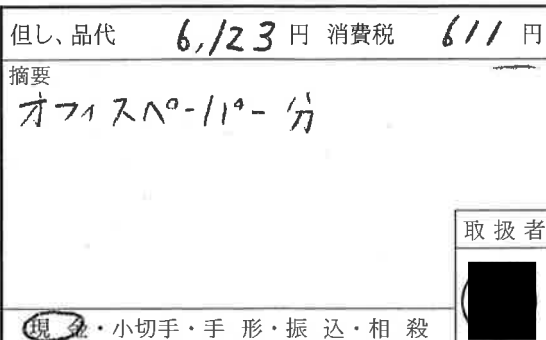 但し、品代 6,123 円 消費税 611 円
摘要
オフィスペーパー分
取扱者
現金・小切手・手形・振込・相殺